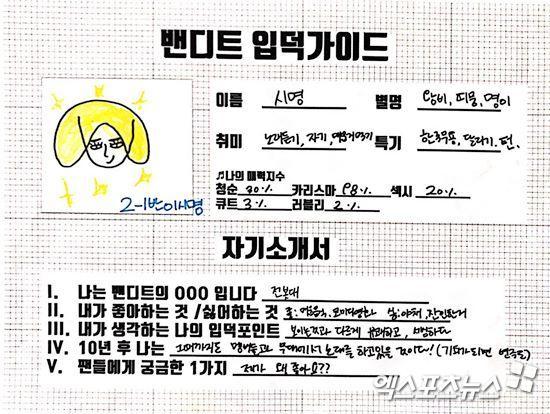 밴디트 입덕가이드
이름 시명 별명 얌비, 띠몽, 명이
취미 노래듣기, 자기, 특기 한국무용, 달리기, 턴,
♬나의 매력지수
청순 30% 카리스마 98% 섹시 20%
큐트 3% 러블리 2%
2-1반 이시명
자기소개서
I. 나는 밴디트의 OOO 입니다 전봇대
II. 내가 좋아하는 것 /싫어하는 것 호: 불: 야채,
III. 내가 생각하는 나의 입덕포인트 보이는것과 다르게 유쾌하고,
IV. 10년 후 나는 그때까지도 멤버들과 무대에서 노래를 하고있을 것이다!!
V. 팬들에게 궁금한 1가지 제가 왜 좋아요??
엑스포츠뉴스